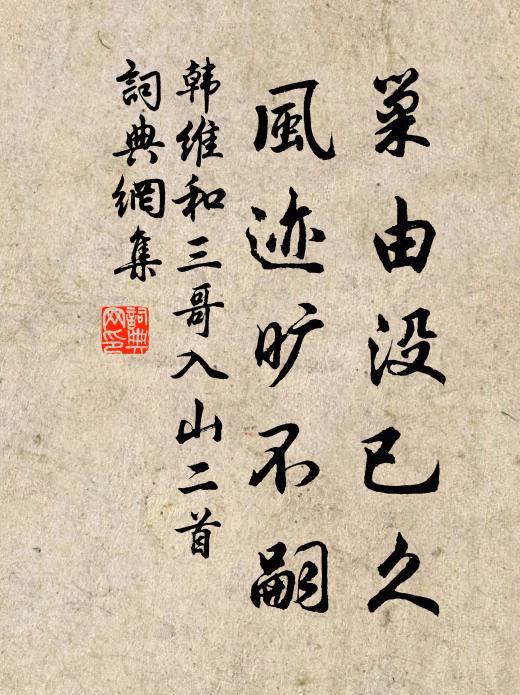 巢由没已久
風迹旷不嗣
韩维和三哥入山二首
詞典網集
詞典網印